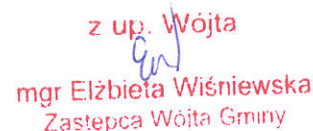 z up. Wójta
mgr Elżbieta Wiśniewska
Zastępca Wójta Gminy